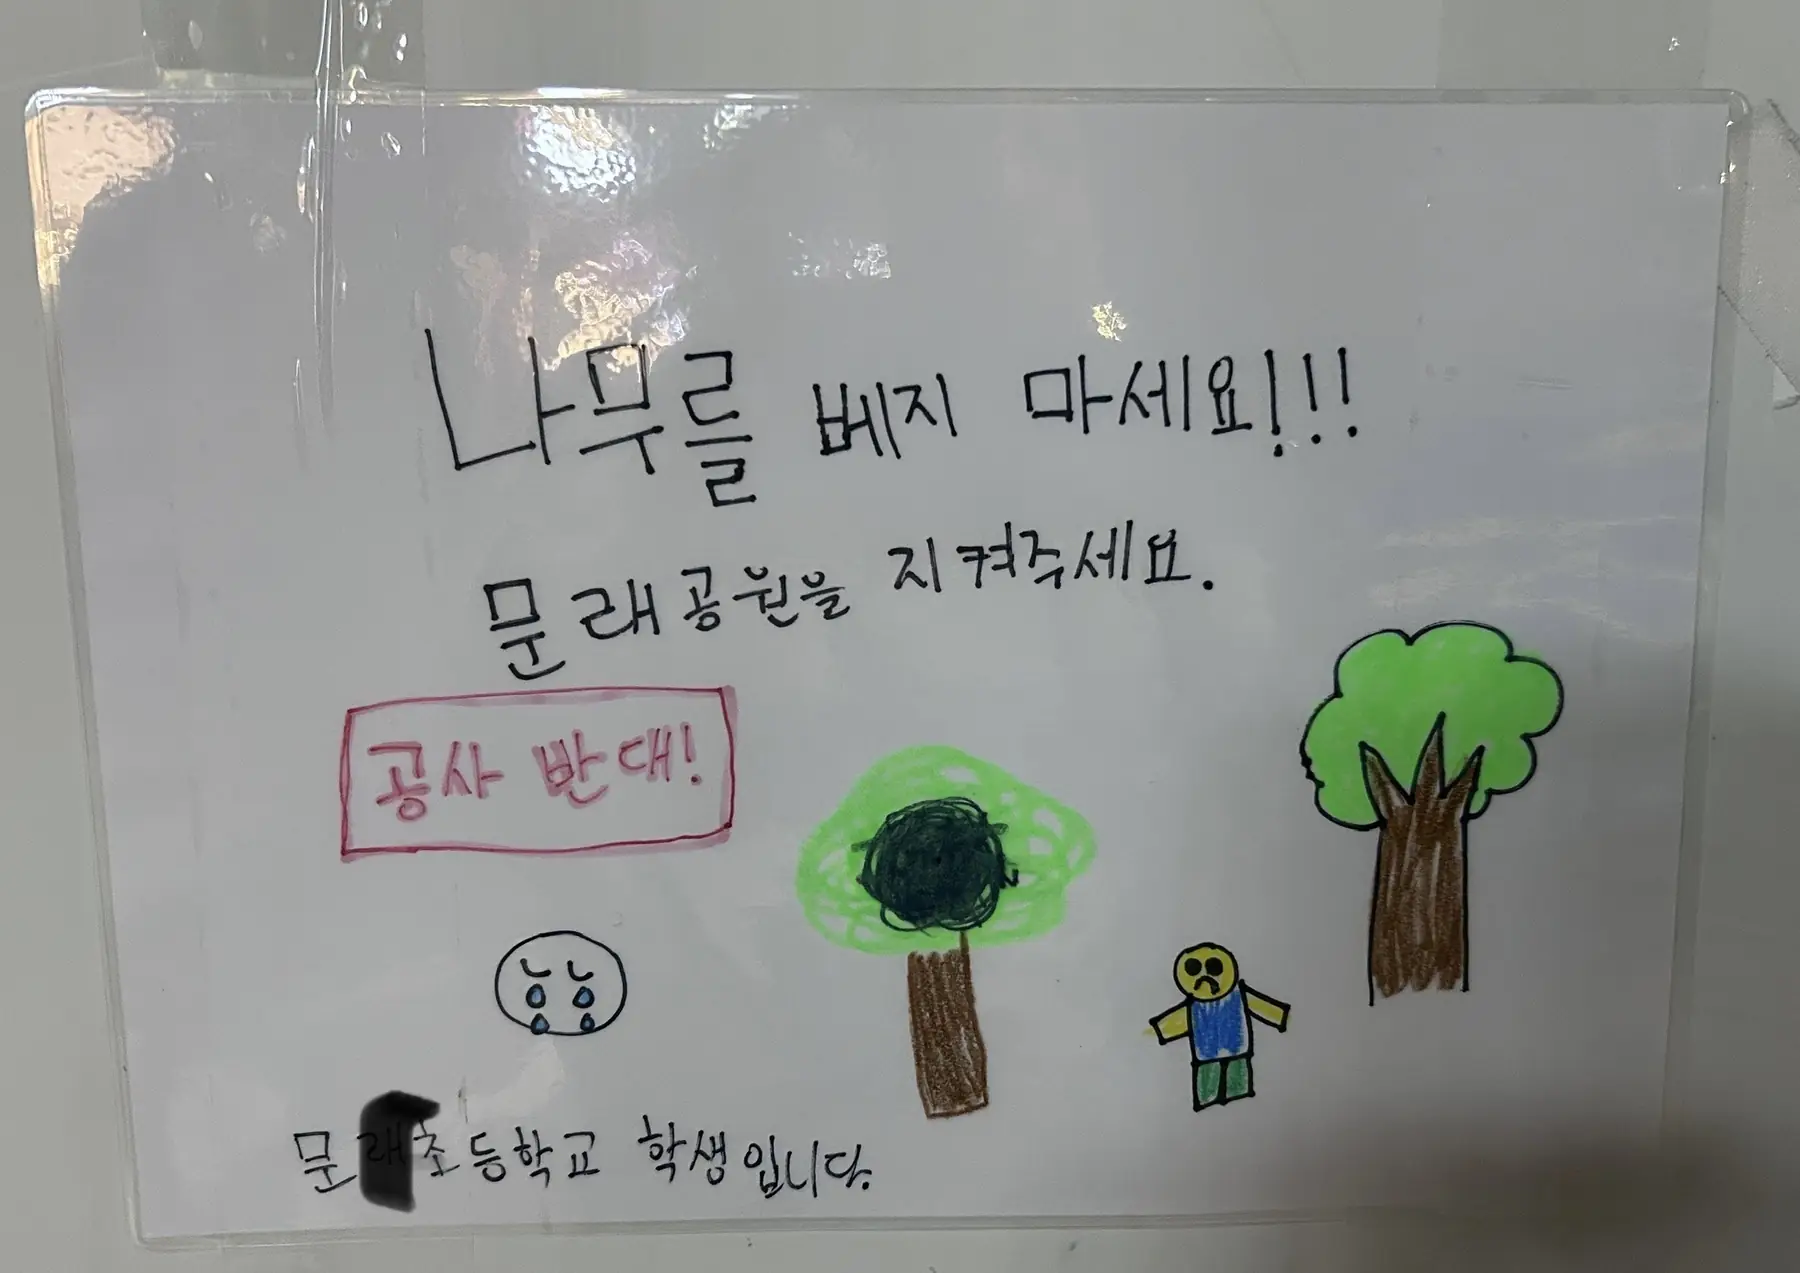 나무를 베지 마세요!!!
문래공원을 지켜주세요.
공사 반대!
문래초등학교 학생입니다.